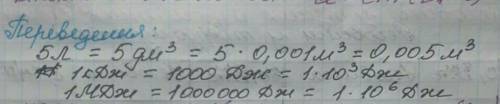 Переведення:
5л = 5 дм³ = 5 · 0,001м³ = 0,005м³
1кДж = 1000 Дж = 1·10³ Дж
1МДж = 1000000 Дж = 1·10⁶ Дж